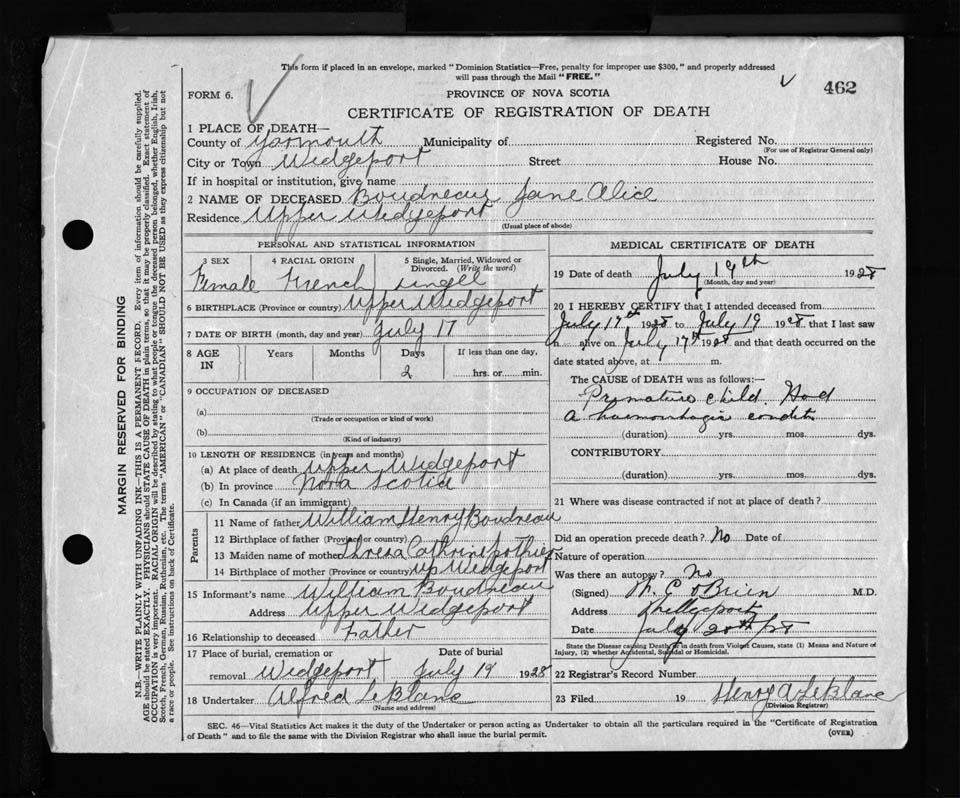 This form if placed in an envelope, marked "Dominion Statistics—Free, penalty for improper use $300," and properly addressed
will pass through the Mail "FREE."
462
FORM 6.
PROVINCE OF NOVA SCOTIA
CERTIFICATE OF REGISTRATION OF DEATH
1 PLACE OF DEATH—
County of Yarmouth Municipality of Registered No.
(For use of Registrar General only)
City or Town Wedgeport Street House No.
If in hospital or institution, give name
2 NAME OF DECEASED Boudreau Jane Alice
Residence Upper Wedgeport
(Usual place of abode)
PERSONAL AND STATISTICAL INFORMATION
3 SEX 4 RACIAL ORIGIN 5 Single, Married, Widowed or
Divorced. (Write the word)
Female French singel
6 BIRTHPLACE (Province or country) Upper Wedgeport
7 DATE OF BIRTH (month, day and year) July 17
8 AGE IN Years Months Days If less than one day,
2 hrs. or min.
9 OCCUPATION OF DECEASED
(a)
(Trade or occupation or kind of work)
(b)
(Kind of industry)
10 LENGTH OF RESIDENCE (in years and months)
(a) At place of death Upper Wedgeport
(b) In province Nova Scotia
(c) In Canada (if an immigrant)
Parents
11 Name of father William Henry Boudreau
12 Birthplace of father (Province or country)
13 Maiden name of mother Cathrine Pothier
14 Birthplace of mother (Province or country) Up Wedgeport
15 Informant's name William Boudreau
Address Upper Wedgeport
16 Relationship to deceased Father
17 Place of burial, cremation or Date of burial
removal Wedgeport July 19 1928
18 Undertaker Alfred LeBlanc
(Name and address)
MEDICAL CERTIFICATE OF DEATH
19 Date of death July 19th 1928
(Month, day and year)
20 I HEREBY CERTIFY that I attended deceased from
July 17th 1928 to July 19 1928 that I last saw
h alive on July 17th 1928 and that death occurred on the
date stated above, at m.
The CAUSE OF DEATH was as follows:—
Premature child. Had
a haemorrhagic condit
(duration) yrs. mos. dys.
CONTRIBUTORY
(duration) yrs. mos. dys.
21 Where was disease contracted if not at place of death?
Did an operation precede death? No Date of
Nature of operation
Was there an autopsy? No
(Signed) O'Brien M.D.
Address
Date July 20th/28
State the Disease causing Death, or in death from Violent Causes, state (1) Means and Nature of
Injury, (2) whether Accidental, Suicidal or Homicidal.
22 Registrar's Record Number
23 Filed 19 Henry A LeBlanc
(Division Registrar)
SEC. 46—Vital Statistics Act makes it the duty of the Undertaker or person acting as Undertaker to obtain all the particulars required in the "Certificate of Registration
of Death" and to file the same with the Division Registrar who shall issue the burial permit.
(OVER)
MARGIN RESERVED FOR BINDING
N.B.—WRITE PLAINLY WITH UNFADING INK—THIS IS A PERMANENT RECORD. Every item of information should be carefully supplied.
AGE should be stated EXACTLY. PHYSICIANS should STATE CAUSE OF DEATH in plain terms, so that it may be properly classified. Exact statement of
OCCUPATION is very important. RACIAL ORIGIN will be described by stating to what people or tongue the deceased person belonged, whether English, Irish,
Scotch, French, German, Russian, Ruthenian, etc. The terms "AMERICAN" or "CANADIAN" SHOULD NOT BE USED as they express citizenship but not
a race or people. See instructions on back of Certificate.